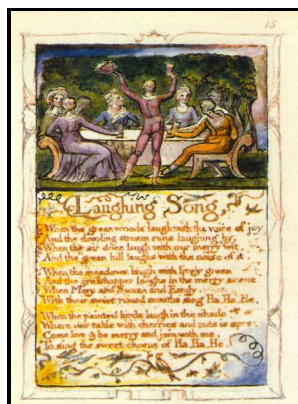 15
Laughing Song,
When the green woods laugh with the voice of joy
And the dimpling stream runs laughing by,
When the air does laugh with our merry wit,
And the green hill laughs with the noise of it
When the meadows laugh with lively green
And the grasshopper laughs in the merry scene
When Mary and Susan and Emily,
With their sweet round mouths sing Ha, Ha, He.
When the painted birds laugh in the shade
Where our table with cherries and nuts is spread
Come live & be merry and join with me,
To sing the sweet chorus of Ha, Ha, He.